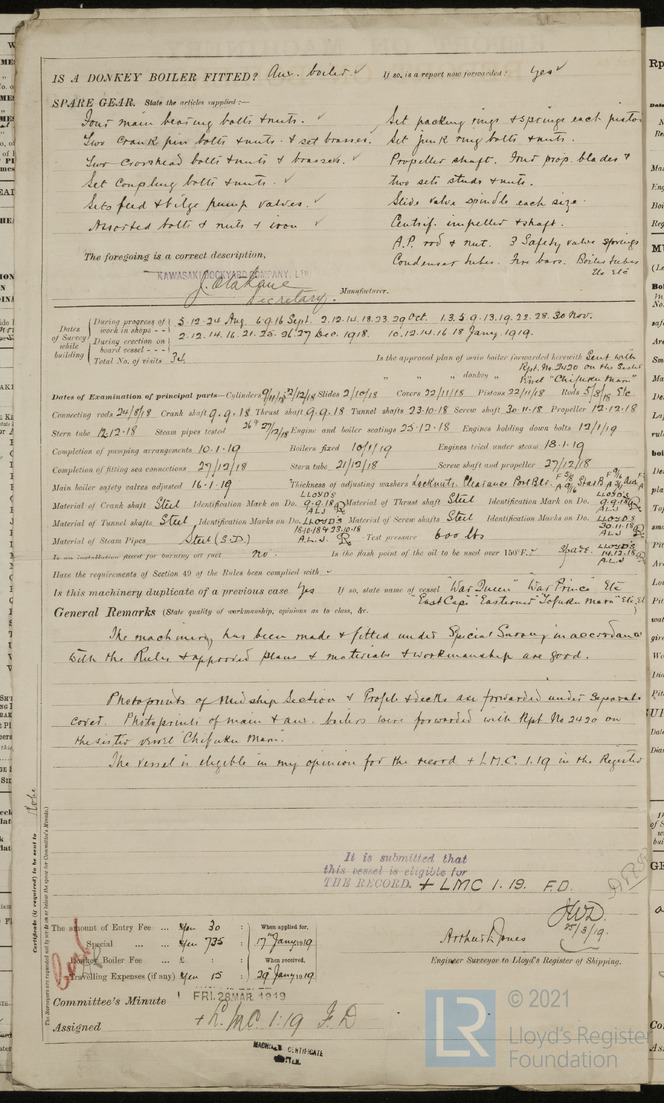 IS A DONKEY BOILER FITTED? Aux. boiler ✓ If so, is a report now forwarded? Yes ✓
SPARE GEAR. State the articles supplied:—
Four main bearing bolts & nuts. ✓ Set packing rings & springs each piston
Two crank pin bolts & nuts. & set brasses. Set junk ring bolts & nuts.
Two crosshead bolts & nuts & brasses. ✓ Propeller shaft. Four prop. blades &
Set coupling bolts & nuts. ✓ two sets studs & nuts.
Sets feed & bilge pump valves. ✓ Slide valve spindle each size.
Assorted bolts & nuts & iron ✓ Centrif. impeller & shaft.
A.P. rod & nut. 3 Safety valve springs
The foregoing is a correct description, Condenser tubes. Fire bars. Boiler tubes
Etc Etc
KAWASAKI DOCKYARD COMPANY, LTD
Secretary. Manufacturer.
Dates of Survey while building
During progress of work in shops - - 5.12.24 Aug 6.9.16 Sept. 2.12.14.18.23.29 Oct. 1.3.5.9.13.19.22.28.30 Nov.
During erection on board vessel - - - 2.12.14.16.21.25.26.27 Dec. 1918. 10.12.14.16.18 Jany. 1919.
Total No. of visits 34 Is the approved plan of main boiler forwarded herewith Sent with
Rpt. No. 2420 on the Sister
" " " donkey " Vessel "Chifuku Maru"
Dates of Examination of principal parts—Cylinders Slides 2/10/18 Covers 22/11/18 Pistons 22/11/18 Rods 5/8/18 Etc
Connecting rods 24/8/18 Crank shaft 9.9.18 Thrust shaft 9.9.18 Tunnel shafts 23.10.18 Screw shaft 30.11.18 Propeller 12.12.18
Stern tube 12.12.18 Steam pipes tested 26 & 27/12/18 Engine and boiler seatings 25.12.18 Engines holding down bolts 12/1/19
Completion of pumping arrangements 10.1.19 Boilers fixed 10/1/19 Engines tried under steam 18.1.19
Completion of fitting sea connections 27/12/18 Stern tube 21/12/18 Screw shaft and propeller 27/12/18
Main boiler safety valves adjusted 16.1.19 Thickness of adjusting washers Locknuts
Material of Crank shaft Steel Identification Mark on Do. LLOYD'S 9.9.18 ALJ Material of Thrust shaft Steel Identification Mark on Do. LLOYD'S 9.9.18 ALJ
Material of Tunnel shafts Steel Identification Marks on Do. LLOYD'S 16.10.18 & 23.10.18 A.L.J. Material of Screw shafts Steel Identification Marks on Do. LLOYD'S 30.11.18 ALJ
Material of Steam Pipes Steel (S.D.) Test pressure 600 lbs
Is an installation fitted for burning oil fuel no. Is the flash point of the oil to be used over 150°F. Spare. LLOYD'S 14.12.18 A.L.J.
Have the requirements of Section 49 of the Rules been complied with
Is this machinery duplicate of a previous case Yes If so, state name of vessel "War Queen" "War Prince" Etc
"East Cape" "Easterner" "Tofuku Maru" Etc Etc
General Remarks (State quality of workmanship, opinions as to class, &c.
The machinery has been made & fitted under Special Survey in accordance
with the Rules & approved plans & materials & workmanship are good.
Photoprints of Midship Section & Profile & decks are forwarded under separate
cover. Photoprints of main & aux. boilers were forwarded with Rpt No 2420 on
the sister vessel "Chifuku Maru".
The vessel is eligible in my opinion for the record + LMC. 1.19 in the Register
Certificate (if required) to be sent to Kobe
(The Surveyors are requested not to write on or below the space for Committee's Minute.)
It is submitted that
this vessel is eligible for
THE RECORD. + LMC 1.19. F.D.
25/3/19.
The amount of Entry Fee ... Yen 30 : When applied for,
Special ... ... Yen 735 : 17 Jany 1919
Donkey Boiler Fee ... £ : : When received,
Travelling Expenses (if any) Yen 15 : 29 Jany 1919
Arthur L Jones
Engineer Surveyor to Lloyd's Register of Shipping.
Committee's Minute FRI. 28 MAR. 1919
Assigned + L.M.C. 1.19 F.D
MACHINERY CERTIFICATE
WRITTEN.
LR © 2021
Lloyd's Register
Foundation